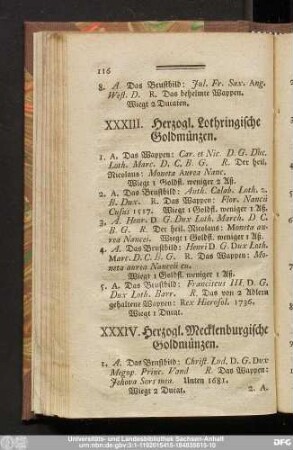 116
8. A Das Brustbild: Jul. Fr. Sax. Ang.
West. D. R. Das behelmte Wappen.
Wiegt 2 Ducaten.
XXXIII. Herzogl. Lothringische
Goldmünzen.
1. A. Das Wappen: Car. et Nic. D. G. Duc.
Loth. Marc. D. C. B. G. R. Der heil.
Nicolaus: Moneta Aurea Nanc.
Wiegt 1 Goldfl. weniger 2 Aß.
2. A. Das Brustbild: Anth. Calab. Loth. z.
B. Dux. R. Das Wappen: Flor. Nancii
Cusus 1517. Wiegt 1 Goldfl. weniger 1 Aß.
3. A. Henr. D. G. Dux Loth. March. D. C.
B. G. R. Der heil. Nicolaus: Moneta au-
rea Nancei. Wiegt 1 Goldfl. weniger 1 Aß.
4. A. Das Brustbild: Henri D. G. Dux Loth.
Marc. D. C. B. G. R. Das Wappen: Mo-
neta aurea Nanceii cu.
Wiegt 1 Goldfl. weniger 1 Aß.
5. A. Das Brustbild: Franciscus III. D. G.
Dux Loth. Barr. R. Das von 2 Adlern
gehaltene Wappen: Rex Hierosol. 1736.
Wiegt 1 Ducat.
XXXIV. Herzogl. Mecklenburgische
Goldmünzen.
1. A. Das Brustbild: Christ. Lud. D. G. Dux
Megap. Princ. Vand R. Das Wappen:
Jehova Sors mea. Unten 1681.
Wiegt 2 Ducat.
2. A.
Universitäts- und Landesbibliothek Sachsen-Anhalt
urn:nbn:de:gbv:3:1-1192015415-184835815-10
DFG